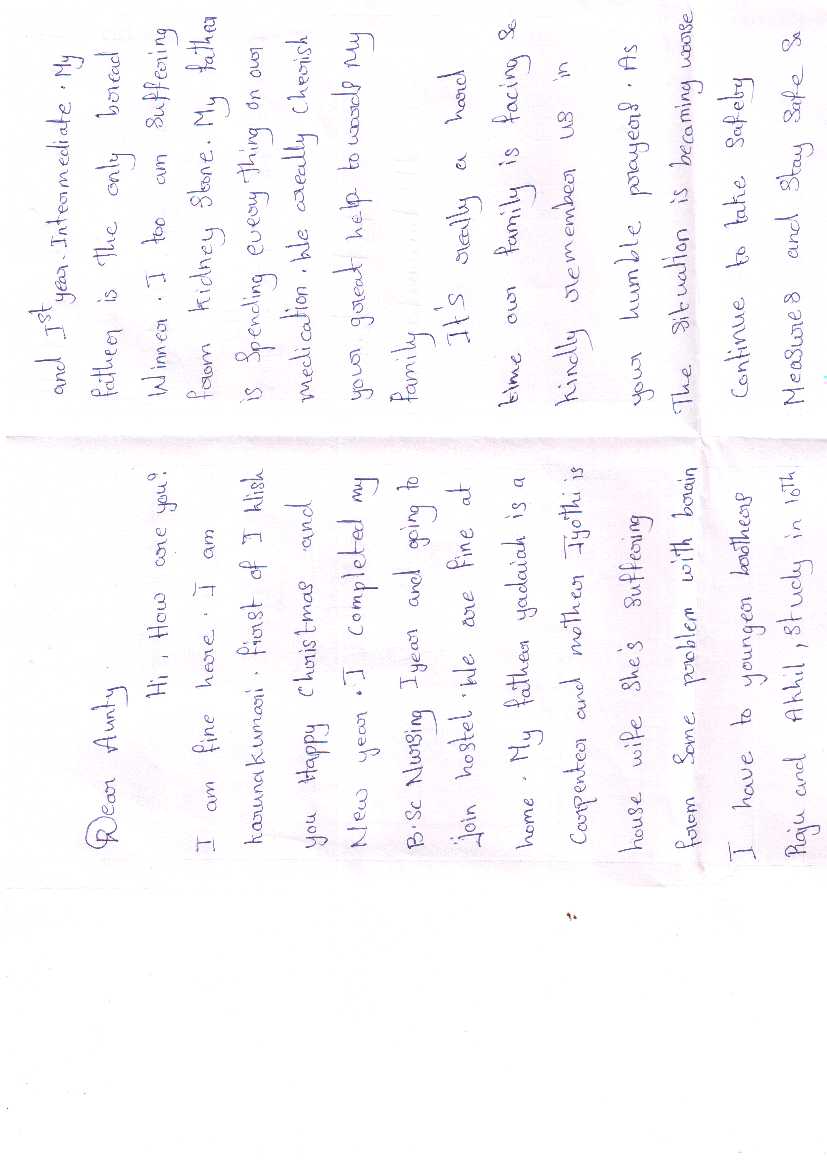 Dear Aunty
Hi, How are you?
I am fine here. I am
karunakumari. first of I Wish
you Happy Christmas and
New year. I completed my
B.Sc Nursing I year and going to
join hostel. We are fine at
home. My father yadaiah is a
Carpenter and mother Jyothi is
house wife she's suffering
from some problem with brain
I have to younger brothers
Raju and Akhil, study in 10th
and Ist year. Intermediate. My
father is the only bread
Winner. I too am suffering
from kidney Stone. My father
is Spending every thing on our
medication. We really cherish
your great help towards My
family
It's really a hard
time our family is facing So
kindly remember us in
your humble prayers. As
The situation is becoming worse
Continue to take safety
Measures and Stay Safe So